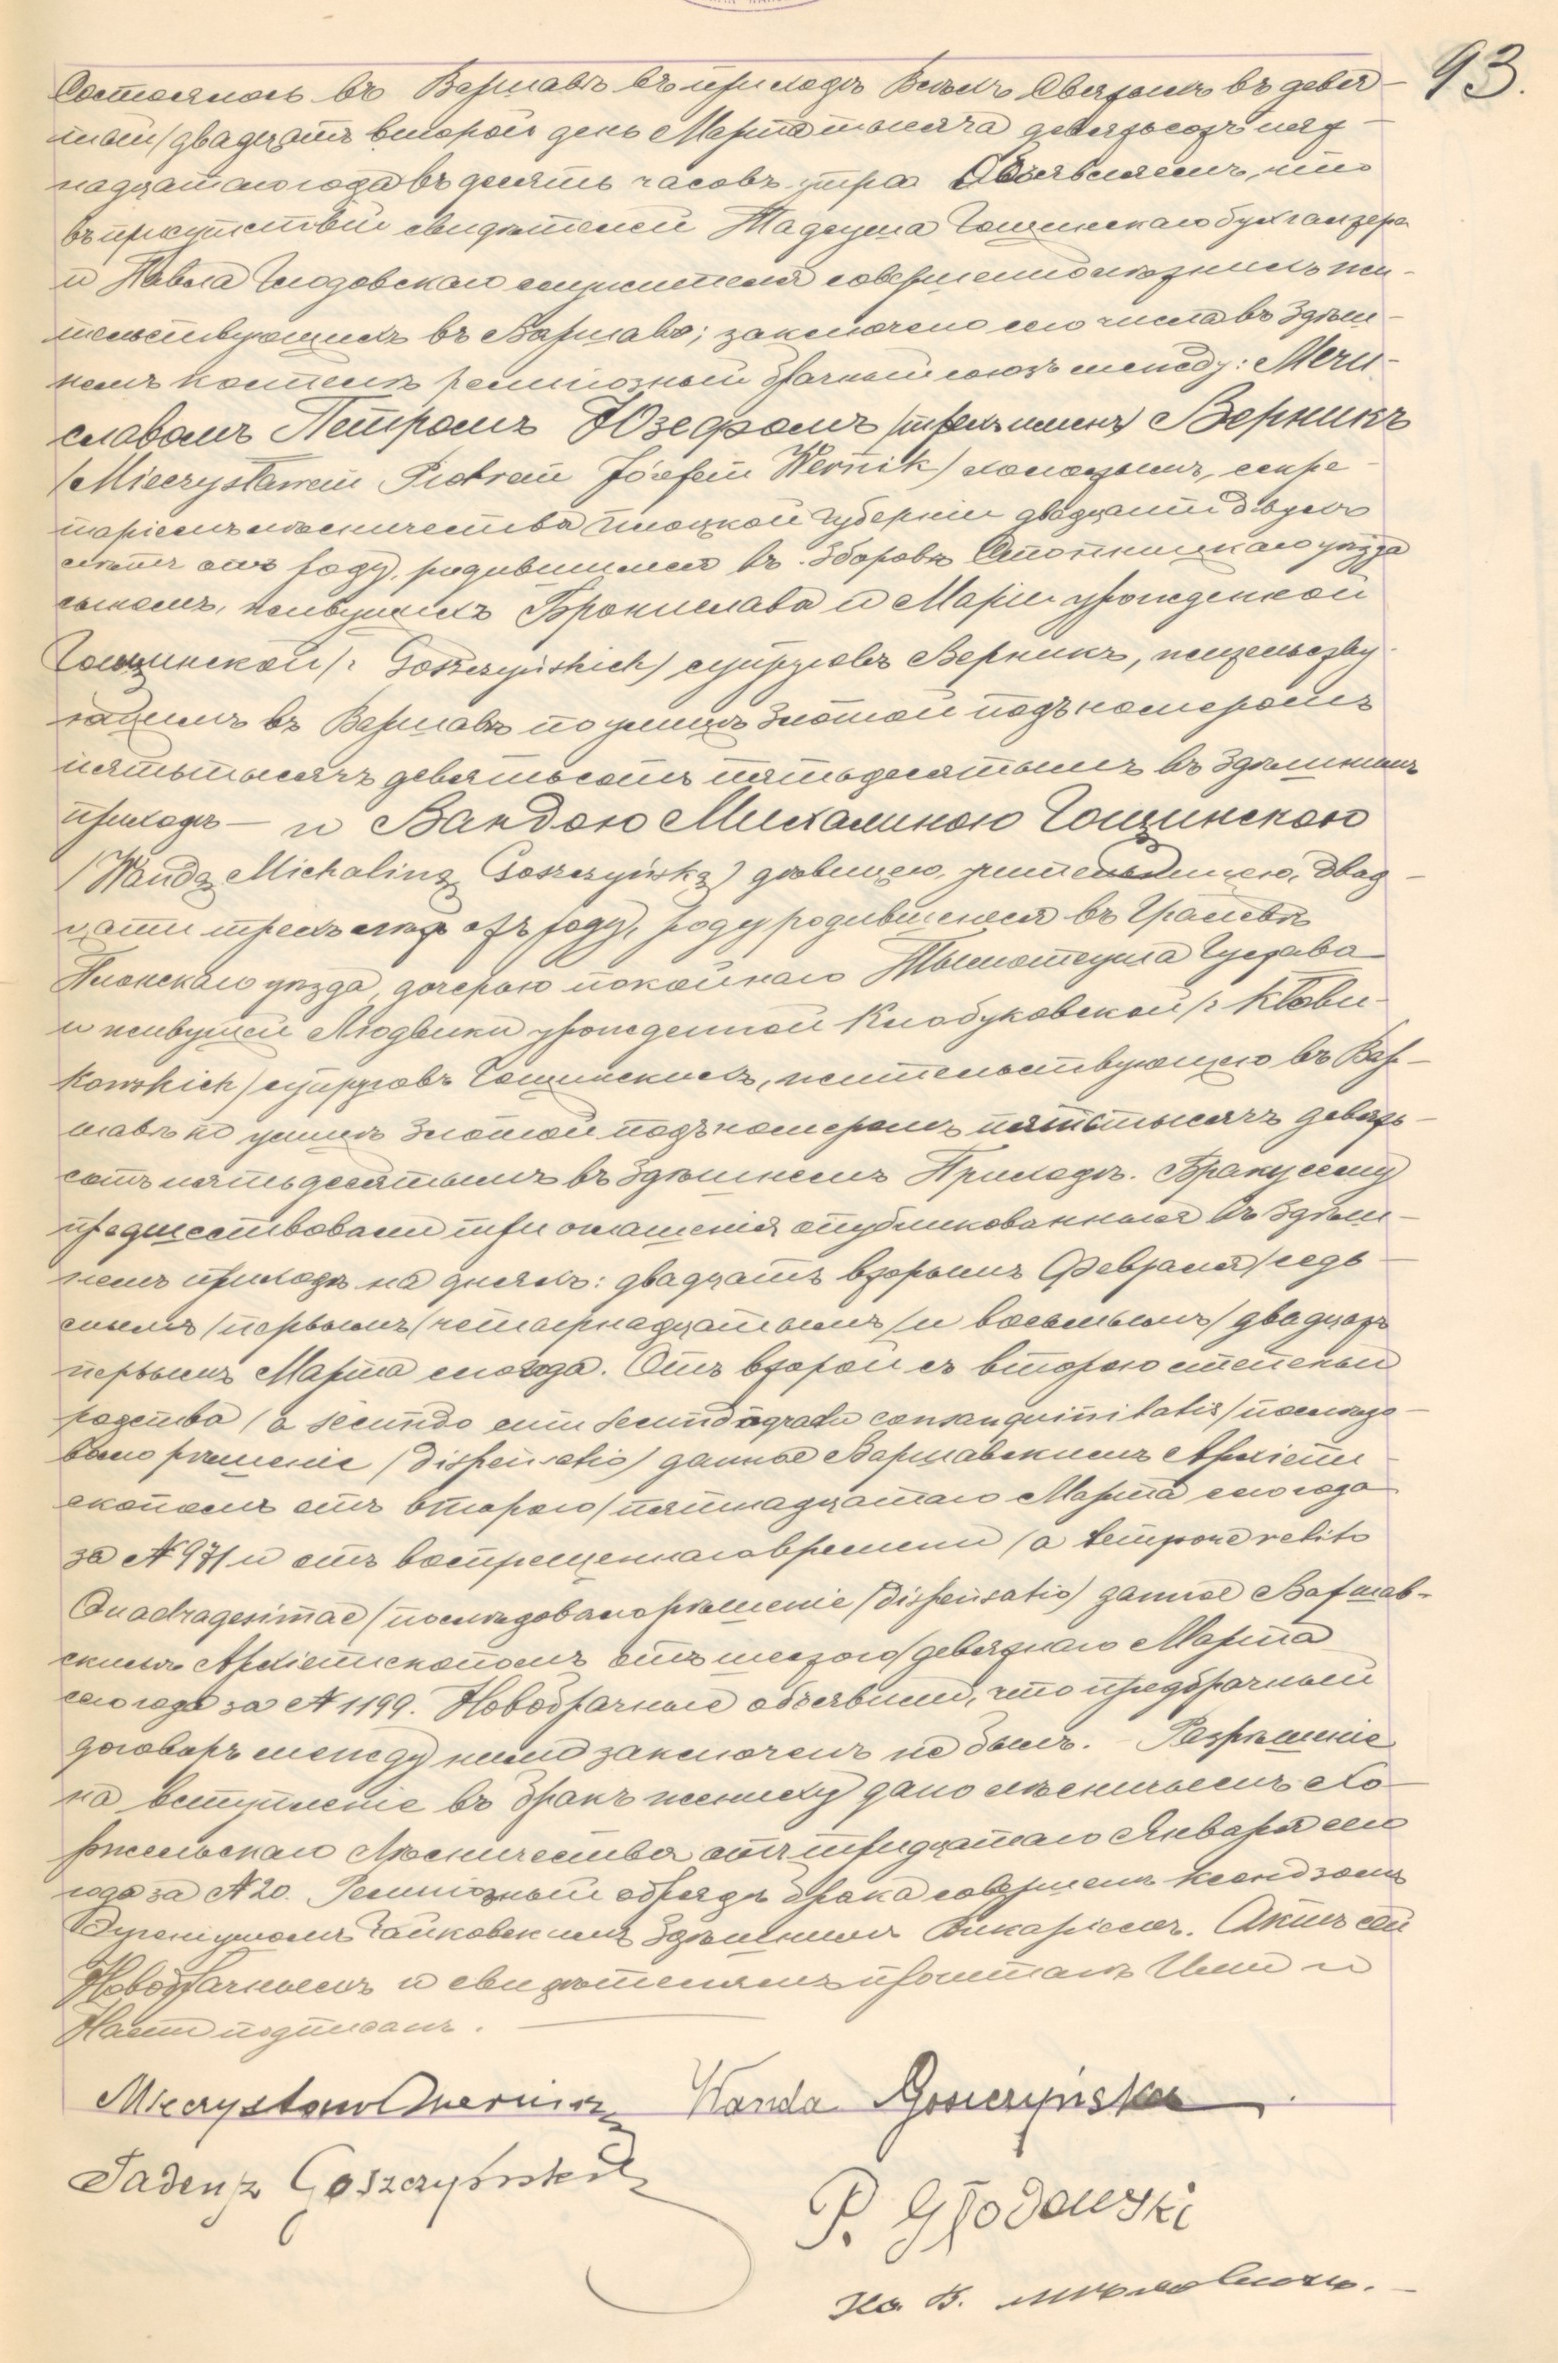 93.
Состоялось въ Варшавѣ въ приходѣ Всѣхъ Святыхъ въ девя-
тый/двадцать второй день Марта тысяча девятьсотъ пят-
надцатаго года въ десять часовъ утра. Объявляемъ, что
въ присутствіи свидѣтелей Тадеуша Гощинскаго бухгалтера
и Павла Глодовскаго служителя совершеннолѣтнихъ жи-
тельствующихъ въ Варшавѣ; заключено сего числа въ здѣш-
немъ костелѣ религіозный брачный союзъ между: Мечи-
славомъ Петромъ Юзефомъ /трехъ именъ/ Верникъ
/Mieczysławem Piotrem Józefem Wernik/ холостымъ, секре-
таремъ лѣсничества Плоцкой губерніи двадцати двухъ
лѣтъ отъ роду, родившимся въ Зборовѣ Стопницкаго уѣзда
сыномъ, живущихъ Бронислава и Маріи урожденной
Гощинской /z Goszczyńskich/ супруговъ Верникъ, жительству-
ющимъ въ Варшавѣ по улицѣ Злотой подъ номеромъ
пятьтысячъ девятьсотъ пятьдесятымъ въ здѣшнемъ
приходѣ — и Вандою Михалиною Гощинскою
/Wandą Michaliną Goszczyńską/ дѣвицею, учительницею, двад-
цати трехъ лѣтъ отъ роду, роду родившеюся въ
Плонскаго уѣзда, дочерью покойнаго Густава
и живущей Людвики урожденной Клобуковской /z Kłobu-
kowskich/ супруговъ Гощинскихъ, жительствующею въ Вар-
шавѣ по улицѣ Злотой подъ номеромъ пятьтысячъ девять-
сотъ пятьдесятымъ въ здѣшнемъ Приходѣ. Браку сему
предшествовали три оглашенія опубликованныя въ здѣш-
немъ приходѣ на дняхъ: двадцать вторымъ Февраля/седь-
мымъ/первымъ/четырнадцатымъ/и восьмымъ/двадцать
первымъ Марта сего года. Отъ второй съ второю степеньи
родства /a secundo cum secundo gradu consanguinitatis/ послѣдо-
вало рѣшеніе /dispensatio/ данное Варшавскимъ Архіепи-
скопомъ отъ второго/пятнадцатаго Марта сего года
за № 971 и отъ воспрещеннаго времени /a tempore vetito
Quadragesimae/ послѣдовало рѣшеніе /dispensatio/ данное Варшав-
скимъ Архіепископомъ отъ Марта
сего года за № 1199. Новобрачные объявили, что предбрачный
договоръ между ними заключенъ не былъ. Разрѣшеніе
на вступленіе въ бракъ жениху дано лѣсничьемъ Хо-
ржельскаго Лѣсничества отъ тридцатаго Января сего
года за № 20. Религіозный обрядъ брака совершенъ ксендзомъ
Чайковскимъ здѣшнимъ викаріемъ. Актъ сей
Новобрачнымъ и свидѣтелямъ прочитанъ Ими и
Нами подписанъ.
Mieczysław Wernik Wanda Goszczyńska
Tadeusz Goszczyński
P. Głodowski
Кс. В.